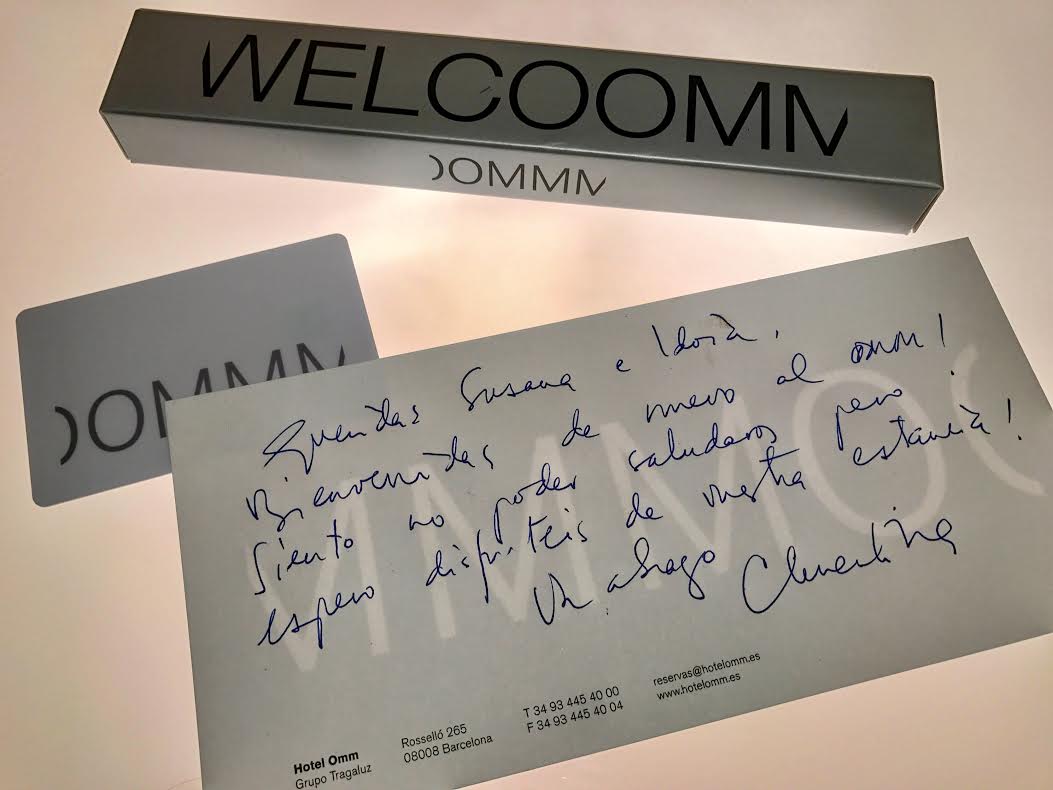 WELCOOMM
OOMMM
OOMMM
Queridas Susana e Idoia,
Bienvenidas de nuevo al omm!
Siento no poder saludaros pero
espero disfruteis de vuestra estancia!
Un abrazo Clementina
Hotel Omm
Grupo Tragaluz
Rosselló 265
08008 Barcelona
T 34 93 445 40 00
F 34 93 445 40 04
reservas@hotelomm.es
www.hotelomm.es